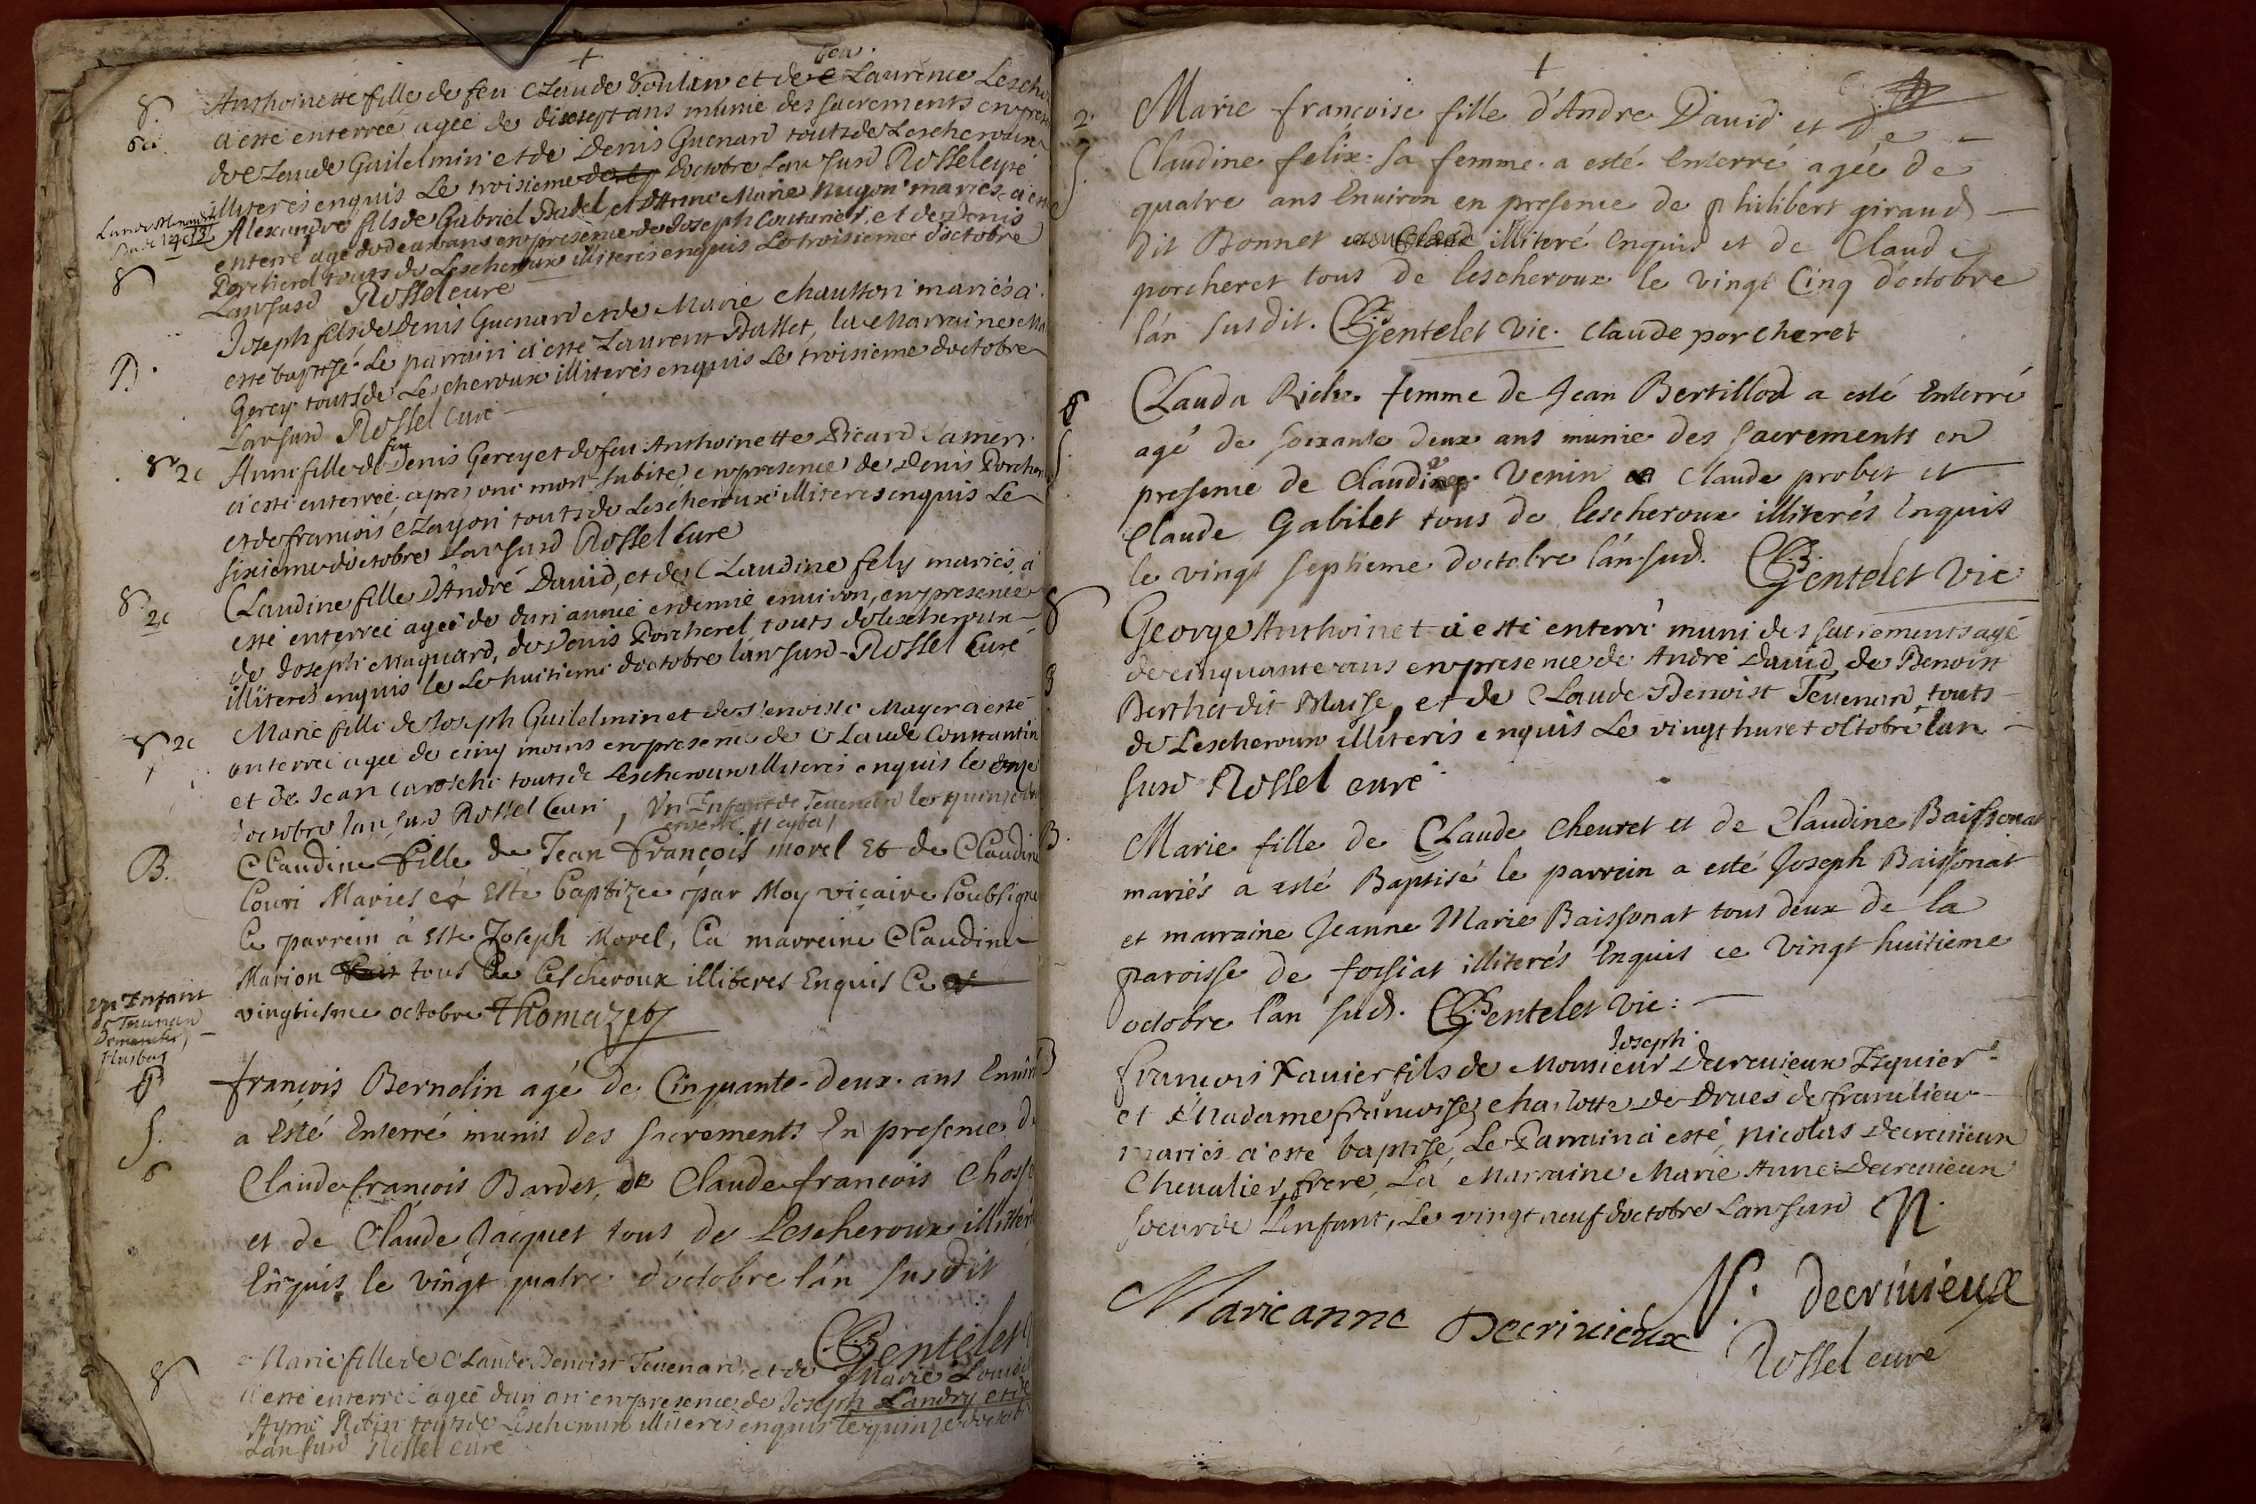 +
feu
Anthoinette fille de feu Claude Poulin et de Laurence Lesche
a esté enterrée agée de dixsept ans munie des sacrements en pres
de Claude Guilelmin et de Denis Guenard touts de Lescheroux
illiteres enquis Le troisieme doctobre Lan susd Rossel curé
Alexandre fils de Gabriel Badel et d'Anne Marie Nugon mariés a esté
enterré agé de deux ans en presence de Joseph Couturier, et de Denis
Porcherel touts de Lescheroux illiterés enquis Le troisieme doctobre
Lan susd Rossel curé
S.
6c
S
Joseph fils de Denis Guenard et de Marie Chausson mariés a
esté baptisé Le parrain a esté Laurent Ballet, la Marraine Ma
Gerey touts de Lescheroux illiterés enquis Le troisieme doctobre
Lan susd Rossel curé
B.
feu
Anne fille de Denis Gerey et de feu Anthoinette Picard
a esté enterrée apres une mort subite, en presence de Denis Porcher
et de françois Clayon touts de Lescheroux illiteres enquis Le
sixieme doctobre Lan susd Rossel Curé
S 2c
Claudine fille d'André David, et de Claudine fely mariés a
esté enterrée agée de dun année et demie environ, en presence
de Joseph Maguard, de Denis Porcherel touts de Lescheroux
illiteres enquis le Le huitieme doctobre lan susd Rossel Curé
S 2c
Marie fille de Joseph Guilelmin et de Benoiste Mayer a esté
enterrée agée de cinq moins en presence de Claude Constantin
et de Jean Caroche touts de Lescheroux illiteres enquis le onze
doctobre lan susd Rossel Curé, Un Enfant de Teuenard le quinze
enterré
S 2c
Claudine fille de Jean François morel Et de Claudine
Couri Mariés a Esté baptizée par Moy vicaire soubsigné
le parrein à Esté Joseph Morel, la marreine Claudine
Marion tous de Lescheroux illiteres Enquis Ce
vingtiesme octobre Thomazet
B.
Un Enfant
de Teuenard
françois Bernolin agé de Cinquante-deux ans Enuiro
a Esté Enterré munis des sacrements En presence de
Claude françois Bardet, de Claude françois Chosse
et de Claude Jacquet tous de Lescheroux illitere
Enquis le vingt quatre d'octobre lán susdit
Gentelet
S.
6
Marie fille de Claude Benoist Teuenard et de Marie Loui
a esté enterrée agée dun an en presence de Joseph Landry et de
Aymé Robin touts de Lescheroux illiteres enquis le quinze doctob
Lan susd Rossel curé
S
+
Marie françoise fille d'Andre Dauid et de
Claudine felix sa femme a esté Enterré agée de
quatre ans Enuiron en presence de philibert giraud
dit Bonnet illiteré Enquis et de Claude
porcheret tous de lescheroux le vingt Cinq d'octobre
lán susdit. Gentelet Vic. Claude porcheret
2.
S.
Clauda Riche femme de Jean Bertillod a esté Enterré
agé de soixante deux ans munie des sacrements en
presence de Claudine Venin Claude probet et
Claude Gabilet tous de lescheroux illiterés Enquis
le vingt septieme doctobre lán sud. Gentelet Vic
S.
George Anthoinet a esté enterré muni des sacrements agé
de cinquante ans en presence de André David, de Benoist
Berthet dit Blaise, et de Claude Benoist Teuenard touts
de Lescheroux illiteris enquis Le vingt huit octobre lan
susd Rossel curé
S
Marie fille de Claude Cheuret et de Claudine Baissonat
mariés a esté Baptisé le parrein a esté Joseph Baissonat
et marraine Jeanne Marie Baissonat tous deux de la
paroisse de foissiat illiterés Enquis ce Vingt huitieme
octobre l'an sud. Gentelet Vic:
B.
Joseph
francois Xauier fils de Monsieur Decreuieux Esquier
et Madame francoise Charlotte de Druès de franclieu
mariés a esté baptisé, Le Parrain a esté nicolas Decreuieux
Chevalier frere, La Marraine Marie Anne Decreuieux
soeur de L'enfant, Le vingt neuf doctobre Lan susd
N. decriuieux
Marie anne Decrivieux
Rossel curé